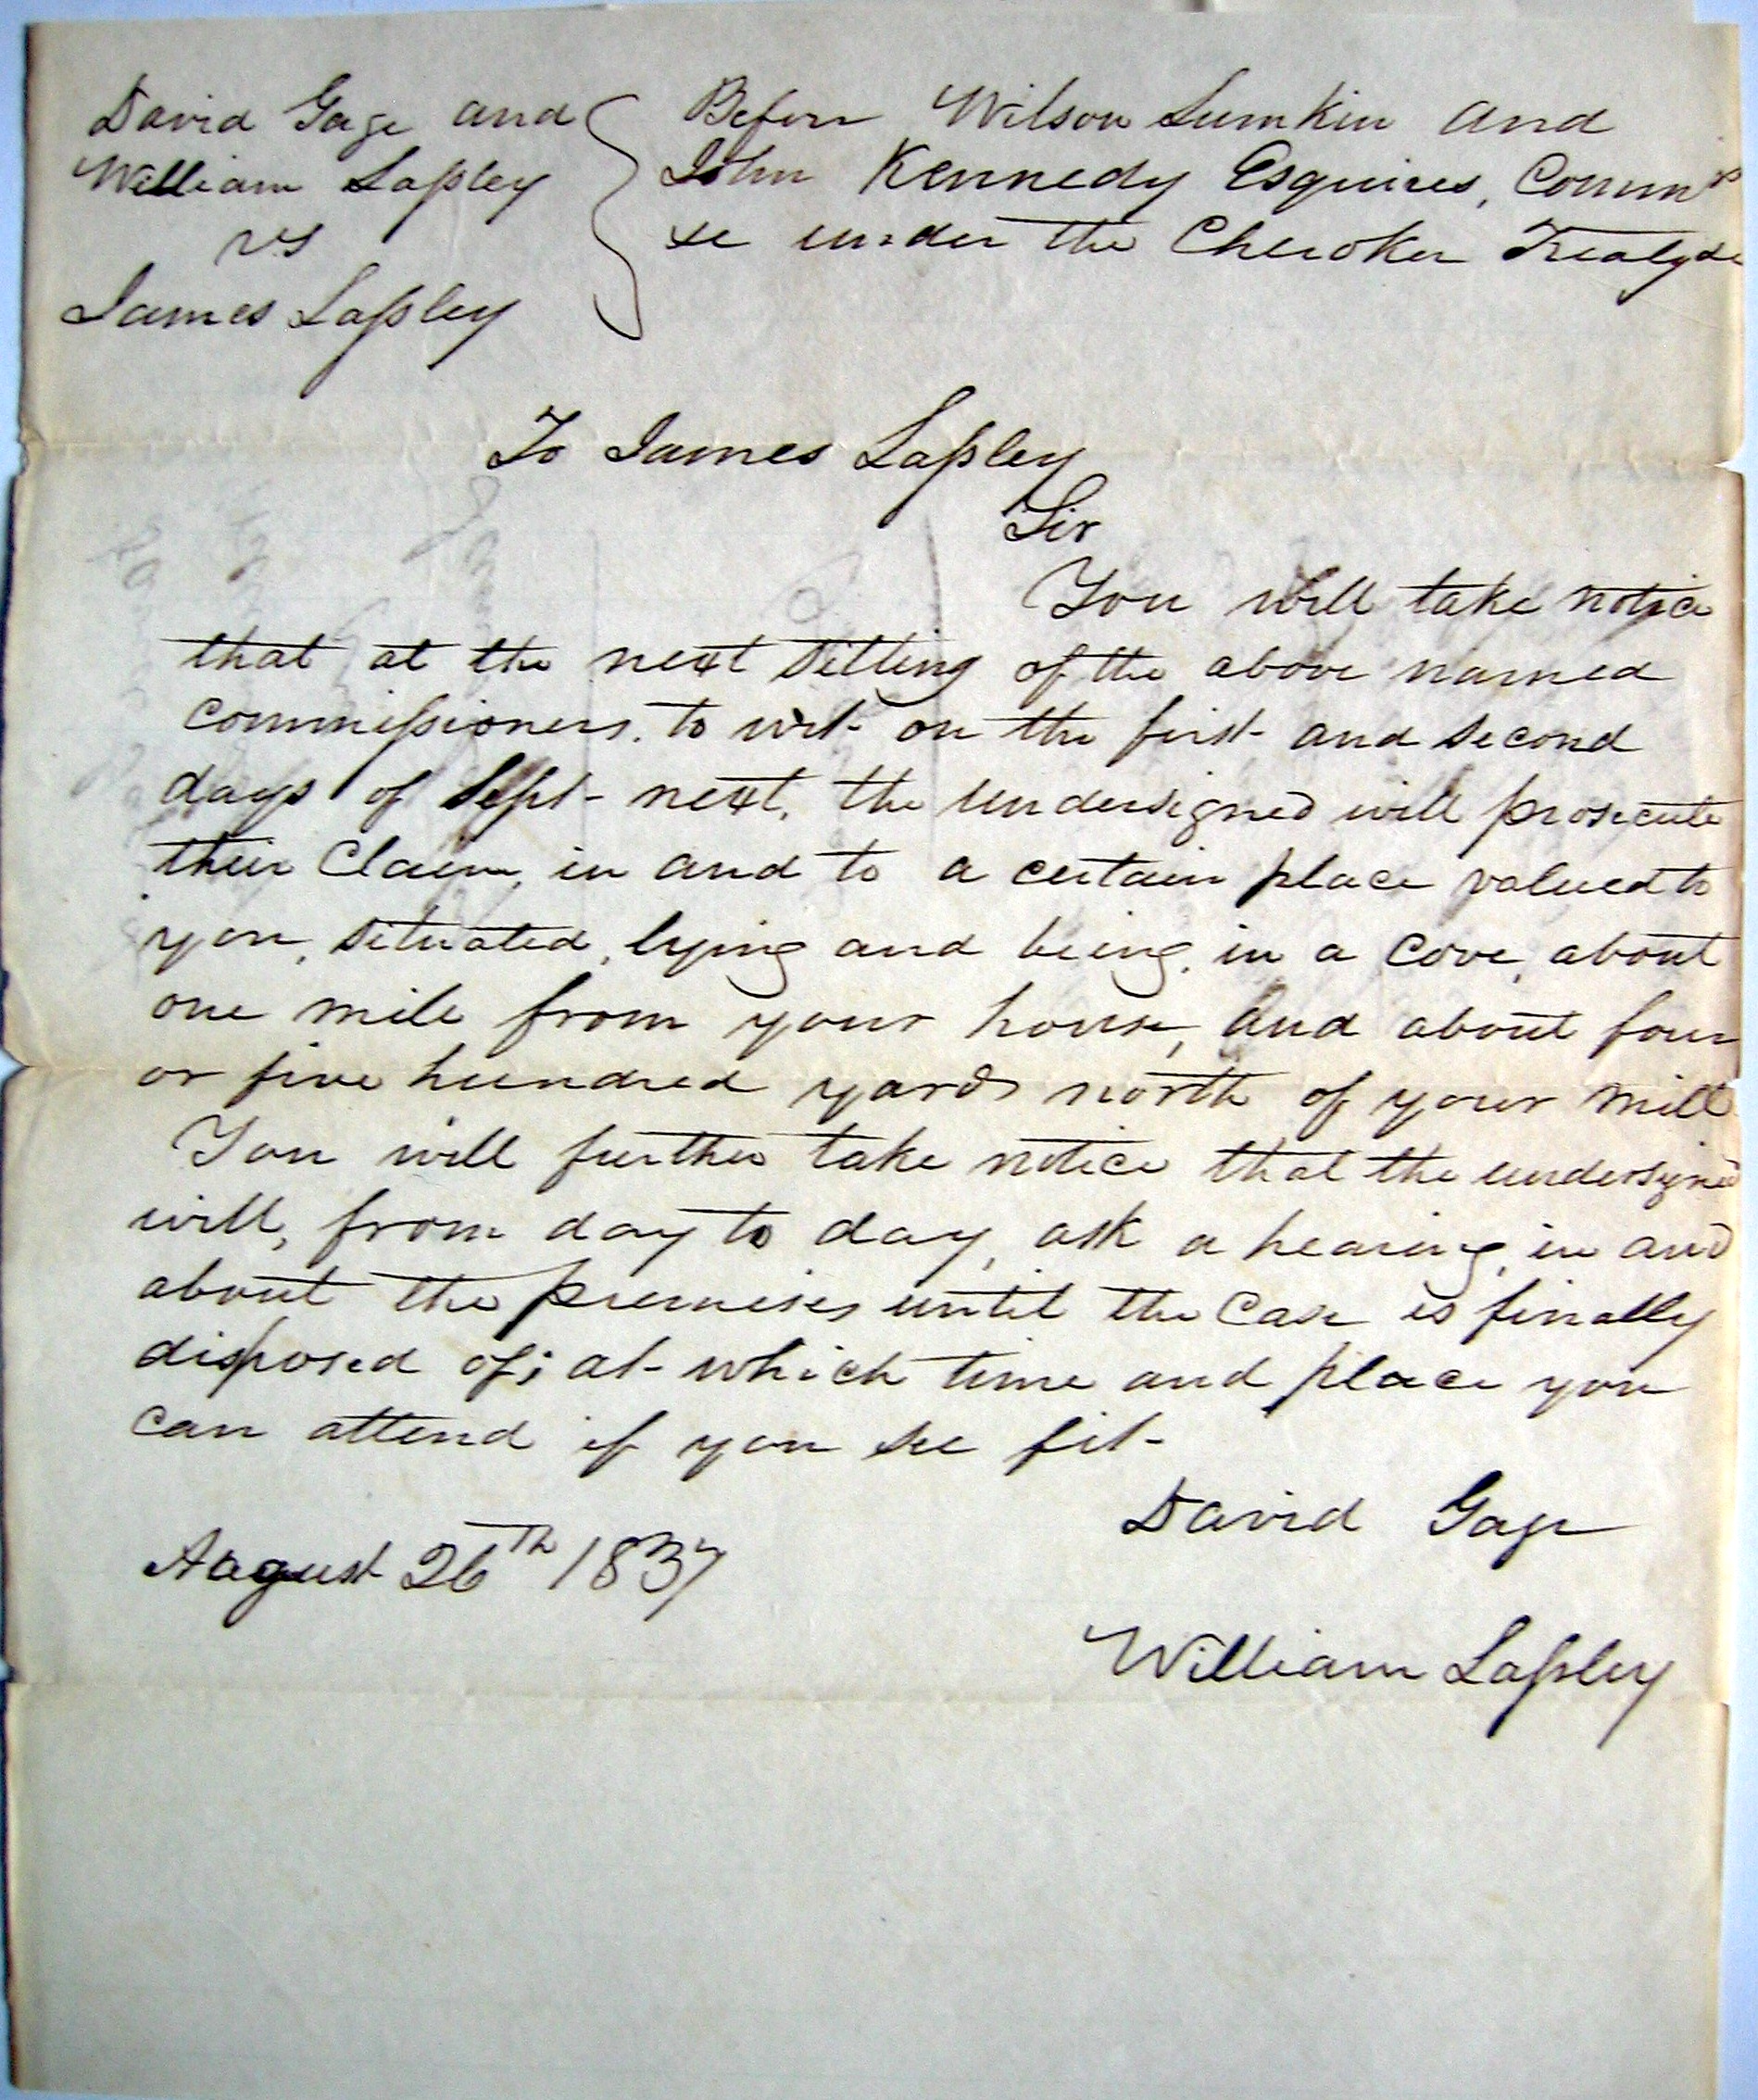 David Gage and
William Lassley
vs
James Lassley
Before Wilson Lumkin and
John Kennedy Esquires, Comm rs
&c under the Cherokee Treaty &c
To James Lassley
Sir
You will take notice
that at the next sitting of the above named
commissioners. to wit on the first and second
days of Sept- next, the undersigned will prosecute
their Claim, in and to a certain place valued to
you, situated, lying and being, in a cove, about
one mile from your house, and about four
or five hundred yards north of your mill
You will further take notice that the undersigned
will, from day to day, ask a hearing, in and
about the premises until the case is finally
disposed of; at which time and place you
can attend if you see fit-
David Gage
August 26th 1837
William Lassley